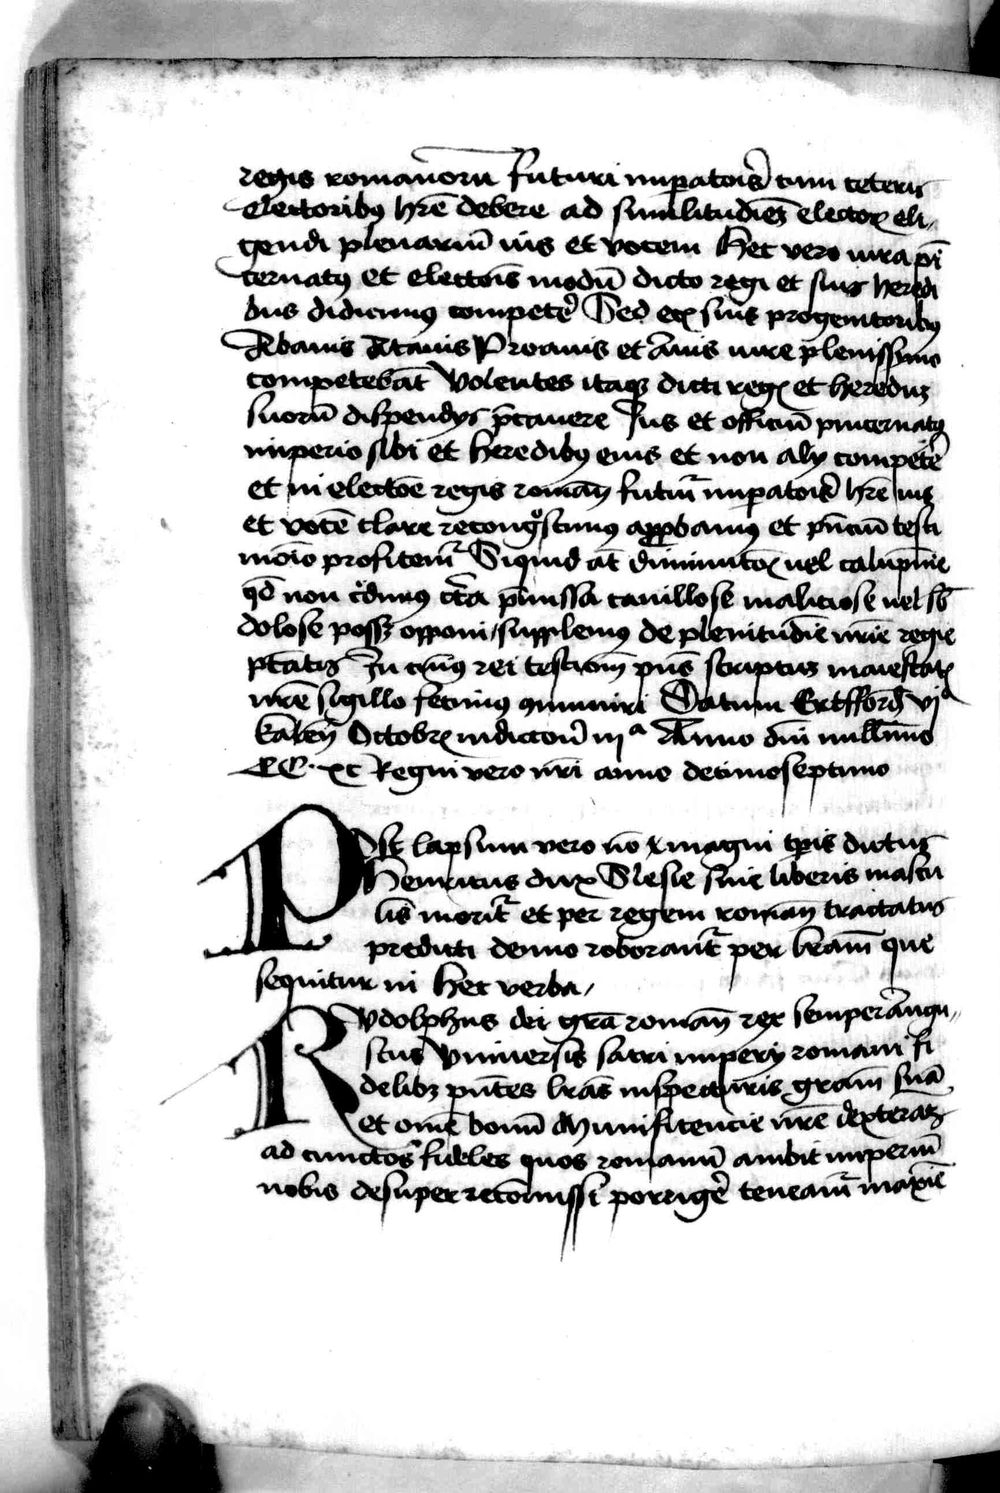 regis romanorū futuri imꝑatoris cum ceteris
electoribus hr̄e debere ad similitudinē electoꝝ eli,
gendi plenariū ius et vocem Hec vero iura pi
cernatus et electōis modū dicto regi et suis heredi
bus didicimus competer̄ Sed eciā suis progenitoribus
Abauis Atauis Proauis et Auis iure plenissimo
competebāt Volentes itaqꝫ dicti regis et heredū
suorū dispendijs p̄cauere Jus et officiū pincernatus
imperio sibi et heredibus eius et non alij competer̄
et in electōe regis romanꝝ futuri imꝑatoris hr̄e ius
et vocē clare recongoscimus approbamus et pn̄ciū testi
monio profitemur Siquid aūt diminutōis uel calūpnie
qd̄ non cr̄dimus cc̄a p̄missa cauillose maliciose uel sb̄
dolose possꝫ opponi supplemus de plenitudīe nr̄e regie
ptātis In cuius rei testiom pn̄s scriptus maiestatis
nr̄e sigillo fecimus cōmuniri Datum Ertffordie vi
kalen̄ Octobris indictōne iijᵃ Anno dn̄i millīmo
CC xc Regni vero nr̄i anno decimoseptimo
Post lapsum vero nō magni tp̄is dictus
Henricus dux Slesie sine liberis mascu
lis morit̄ et per regem roman tractatus
predicti denuo roborant̄ per lr̄am que
sequitur in hec verba,
Rudolphus dei gr̄a roman̄ rex semper Augu,,
stus Vniuersis sacri imperij romani fi
delibꝫ pn̄tes lr̄as inspecturis gr̄am suā
et om̄e bonū Munificencie nr̄e dexteram
ad cunctos fideles quos romanū ambit imperiū
nobis desuper recōmissi porrigē teneamur maxīe